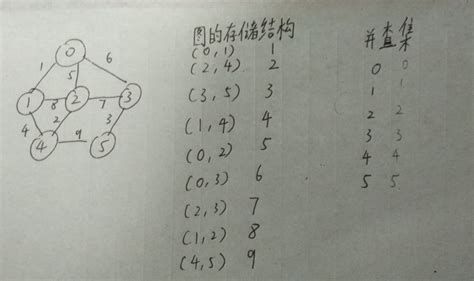 图的存储结构
(0,1) 1
(2,4) 2
(3,5) 3
(1,4) 4
(0,2) 5
(0,3) 6
(2,3) 7
(1,2) 8
(4,5) 9
并查集
0 0
1 1
2 2
3 3
4 4
5 5
0
1 5 6
1 8 2 7 3
4 2 3
4 9 5